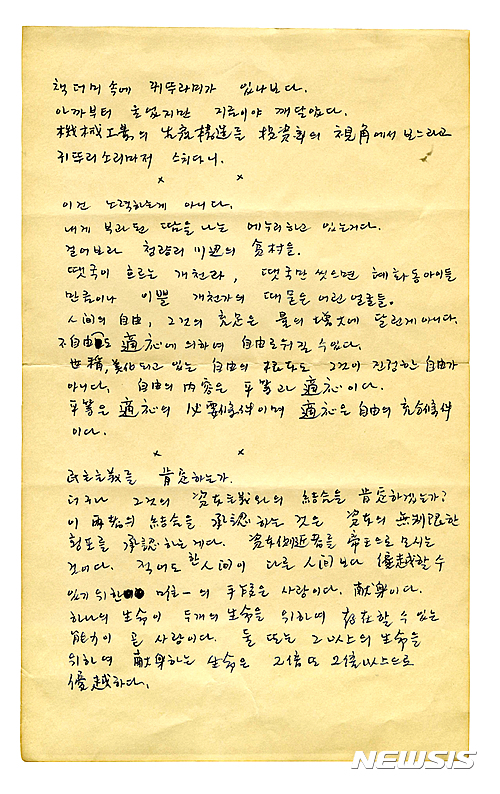 책 더미 속에 귀뚜라미가 있나보다.
아까부터 울었지만 지금이야 깨달았다.
機械工業의 生産構造를 投資家의 視角에서 보느라고
귀뚜리소리마저 스치다니.
× ×
이건 노력하는게 아니다.
내게 부과된 땀을 나는 하고 있는거다.
걸어보라 청량리 川辺의 貧村을.
땟국이 흐르는 개천과, 땟국만 씻으면 혜화동아이들
만큼이나 이쁠 개천가의 때묻은 어린 얼굴들.
人间의 自由, 그것의 充足은 量의 增大에 달린게 아니다.
不自由도 適応에 의하여 自由로워질 수 있다.
美化되고 있는 自由의 그것이 진정한 自由가
아니다. 自由의 內容은 平等과 適応이다.
平等은 適応의 必要條件이며 適応은 自由의 充分條件
이다.
× ×
民主主義를 肯定하는가.
더구나 그것의 資本主義와의 結合을 肯定하겠는가?
이 両者의 結合을 承認하는 것은 資本의 無制限한
횡포를 承認하는게다. 資本側近者를 帝王으로 모시는
것이다. 적어도 한人间이 다른 人间보다 優越할 수
있기 위한 唯一의 手段은 사랑이다. 献身이다.
하나의 生命이 두개의 生命을 위하여 存在할 수 있는
能力이 곧 사랑이다. 둘 또는 그以上의 生命을
위하여 献身하는 生命은 2倍 또 2倍以上으로
優越하다.
NEWSIS